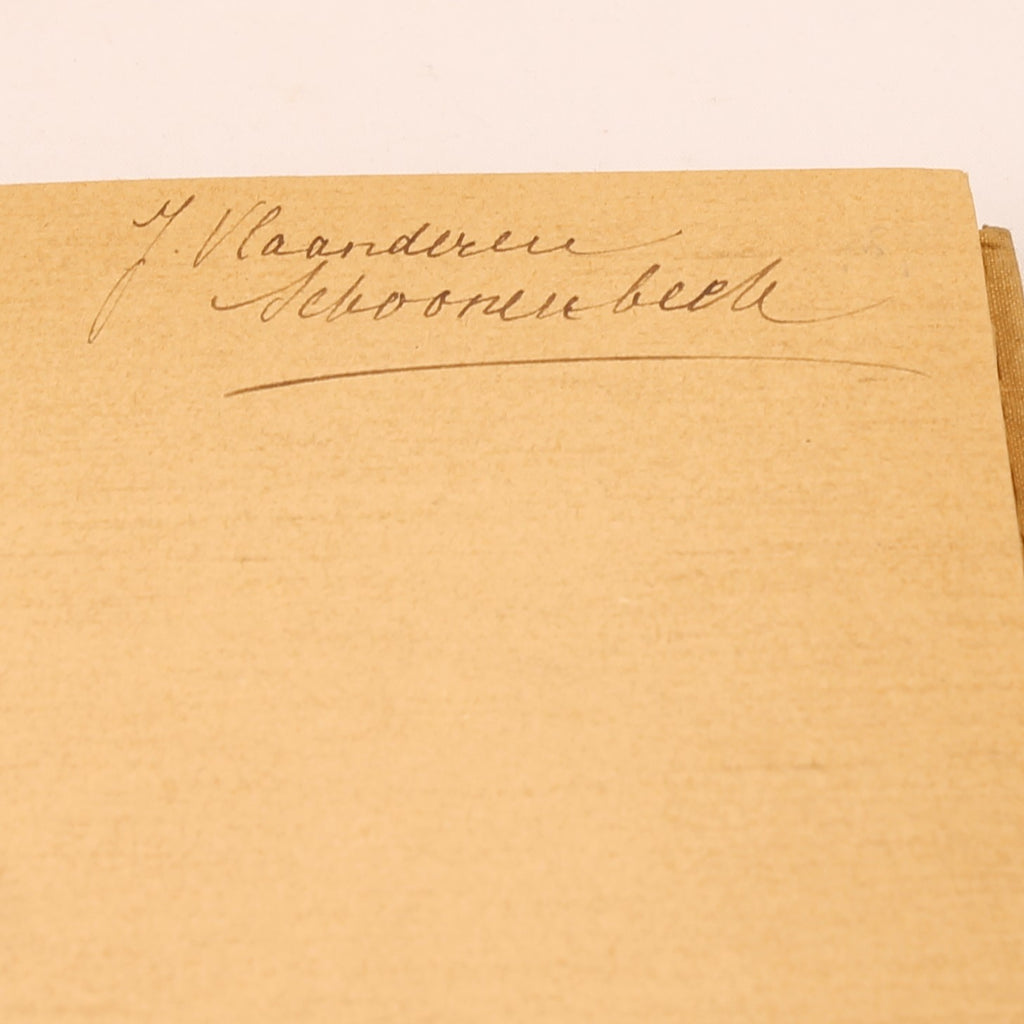 J. Vlaanderen
Schoonenbeek